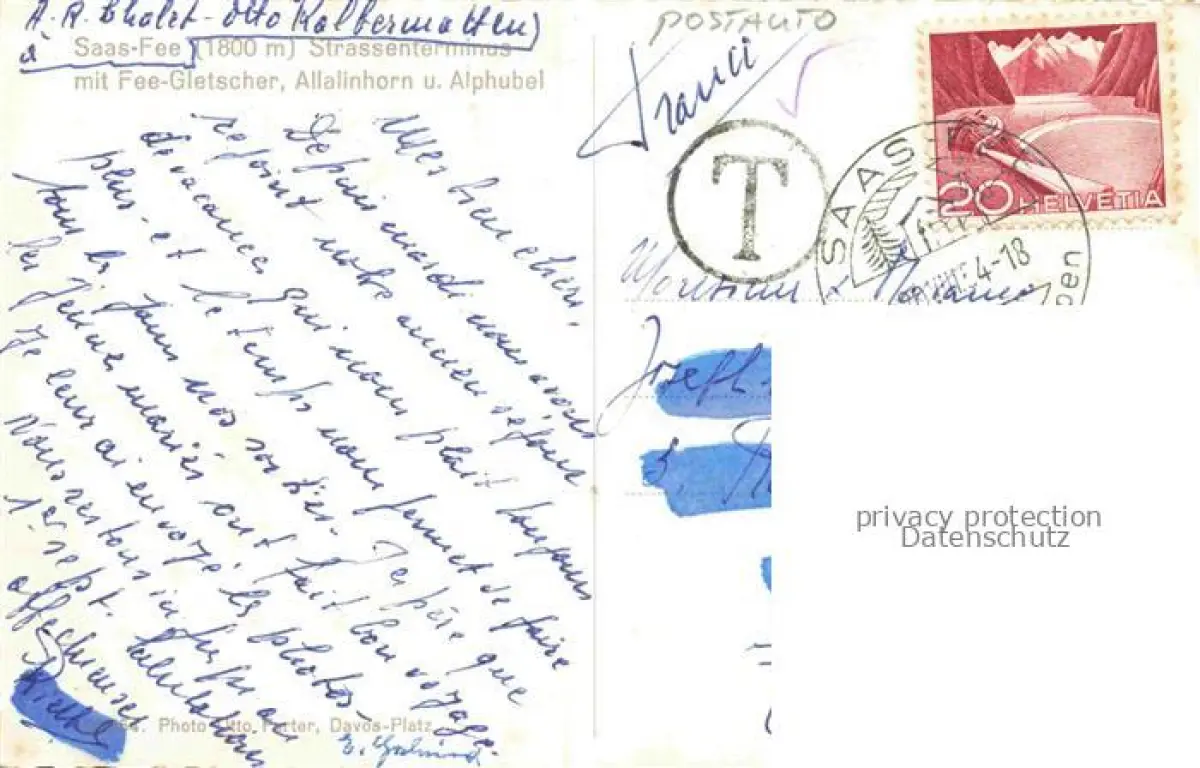 A. R. Chalet - Otto Kalbermatten
à
Saas-Fee (1800 m) Strassenterminus
mit Fee-Gletscher, Allalinhorn u. Alphubel
Mes bien chers,
Depuis mardi nous avons
rejoint notre ancien séjour
de vacances qui nous plait toujours
plus - et le temps nous permet de faire
tous les jours nos sorties. J'espère que
les jeunes mariés ont fait bon voyage.
Je leur ai envoyé les photos -
Nous restons ici jusqu'au
1er sept. Salutations
affectueuses
Photo Otto Furter, Davos-Platz
POSTAUTO
T
SAAS
4-18
20 HELVETIA
Monsieur
Joseph
5
privacy protection
Datenschutz